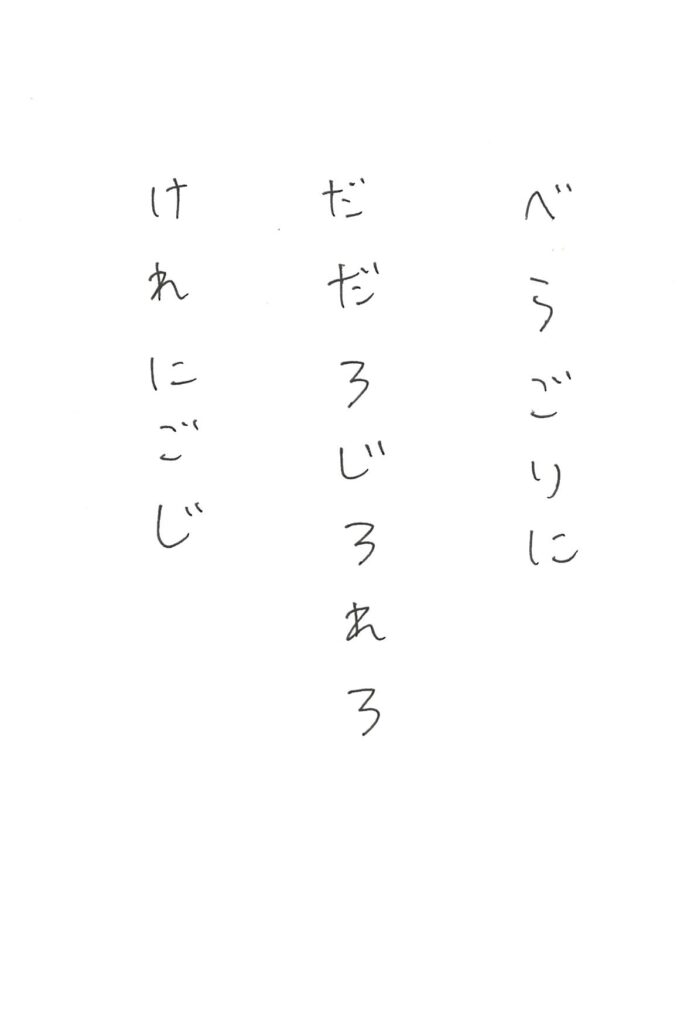 べらごりに
だだろじろれろ
けれにごじ